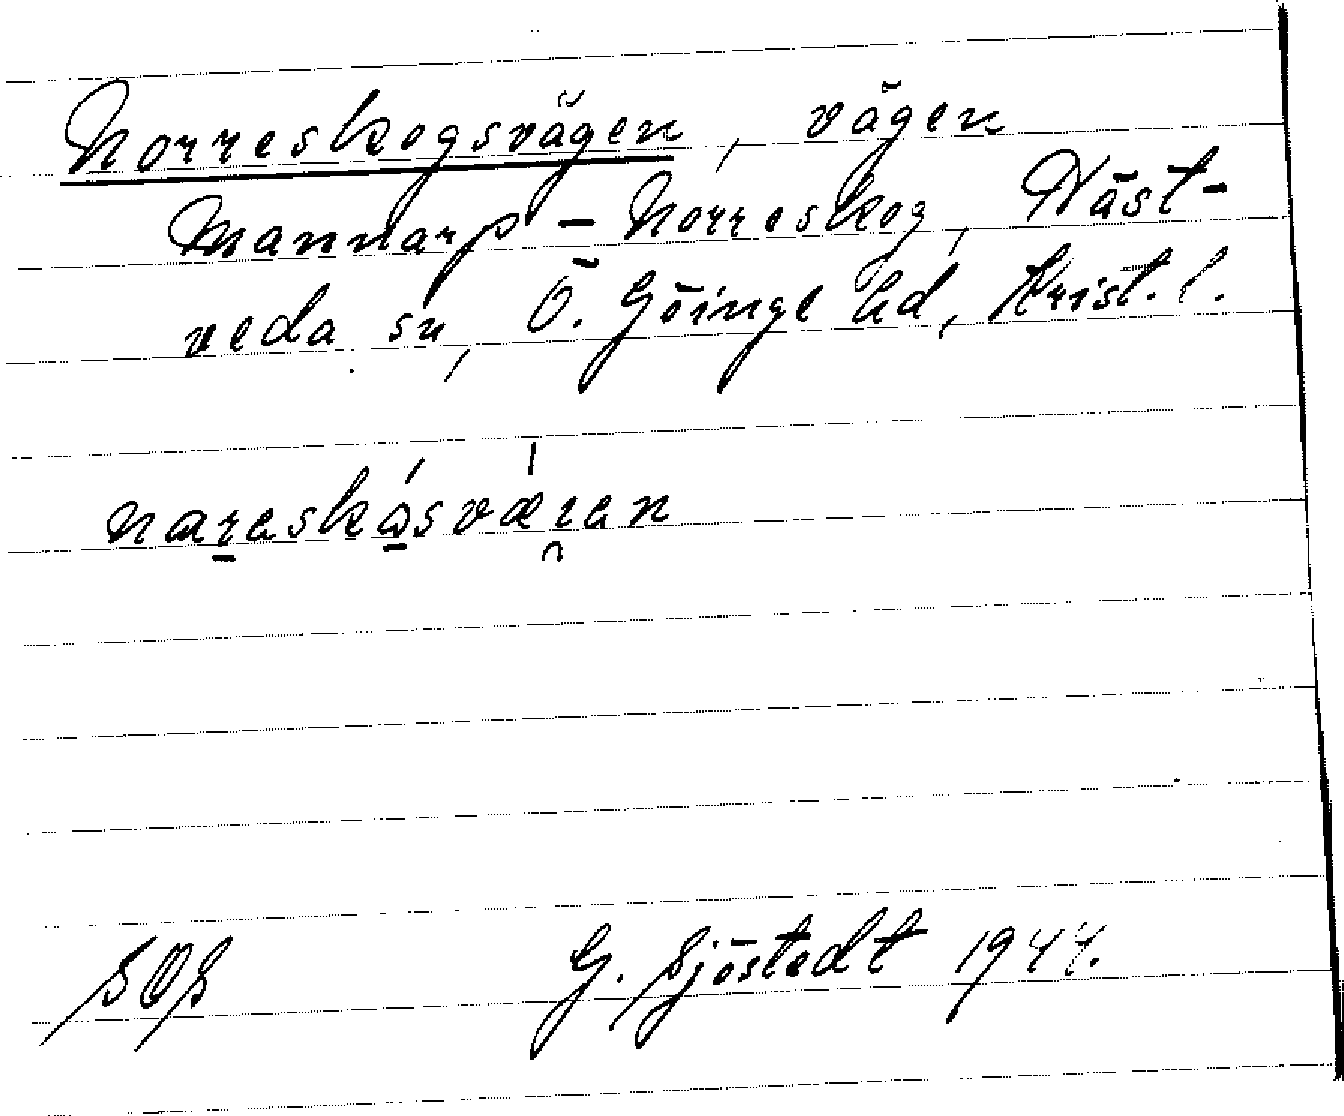 Norreskogsvägen, vägen
Mannarp - Norreskog, Näst-
veda sn, Ö. Göinge hd, Krist. l.
SOS G. Sjöstedt 1944.